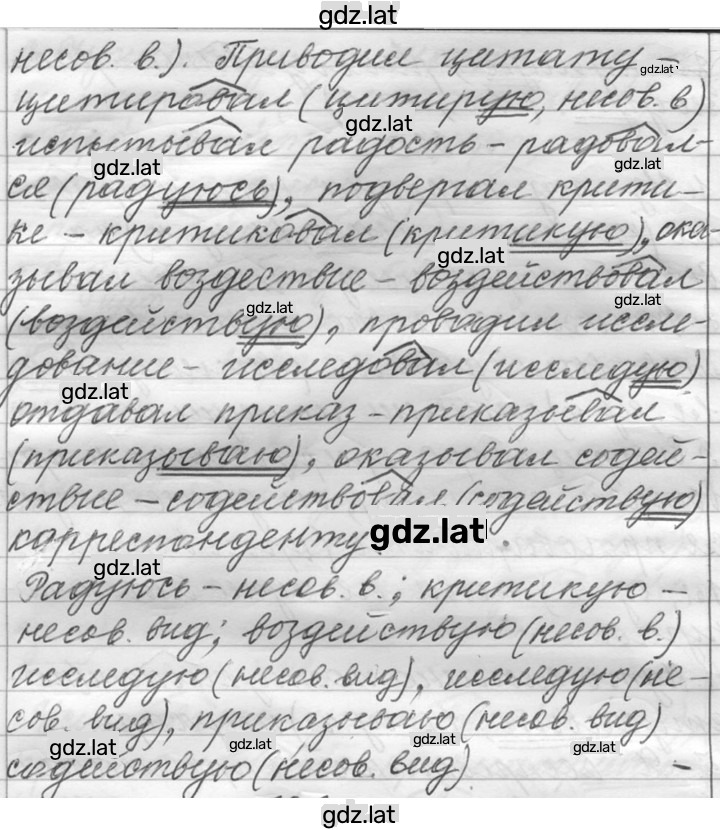 gdz.lat
несов. в.). Приводил цитату -
gdz.lat
цитировал (цитирую, несов. в)
gdz.lat
испытывал радость - радовал-
gdz.lat gdz.lat
ся (радуюсь), подвергал крити-
ке - критиковал (критикую), ока-
gdz.lat
зывал воздествие - воздействовал
gdz.lat gdz.lat
(воздействую), провадил иссле-
дование - исследовал (исследую)
gdz.lat
отдавал приказ - приказывал
(приказываю), оказывал содей-
ствие - содействовал (содействую)
gdz.lat
корреспонденту.
gdz.lat
Радуюсь - несов. в.; критикую -
несов. вид; воздействую (несов. в.)
исследую (несов. вид), исследую (не-
сов. вид), приказываю (несов. вид)
gdz.lat gdz.lat gdz.lat gdz.lat
содействую (несов. вид). -
gdz.lat